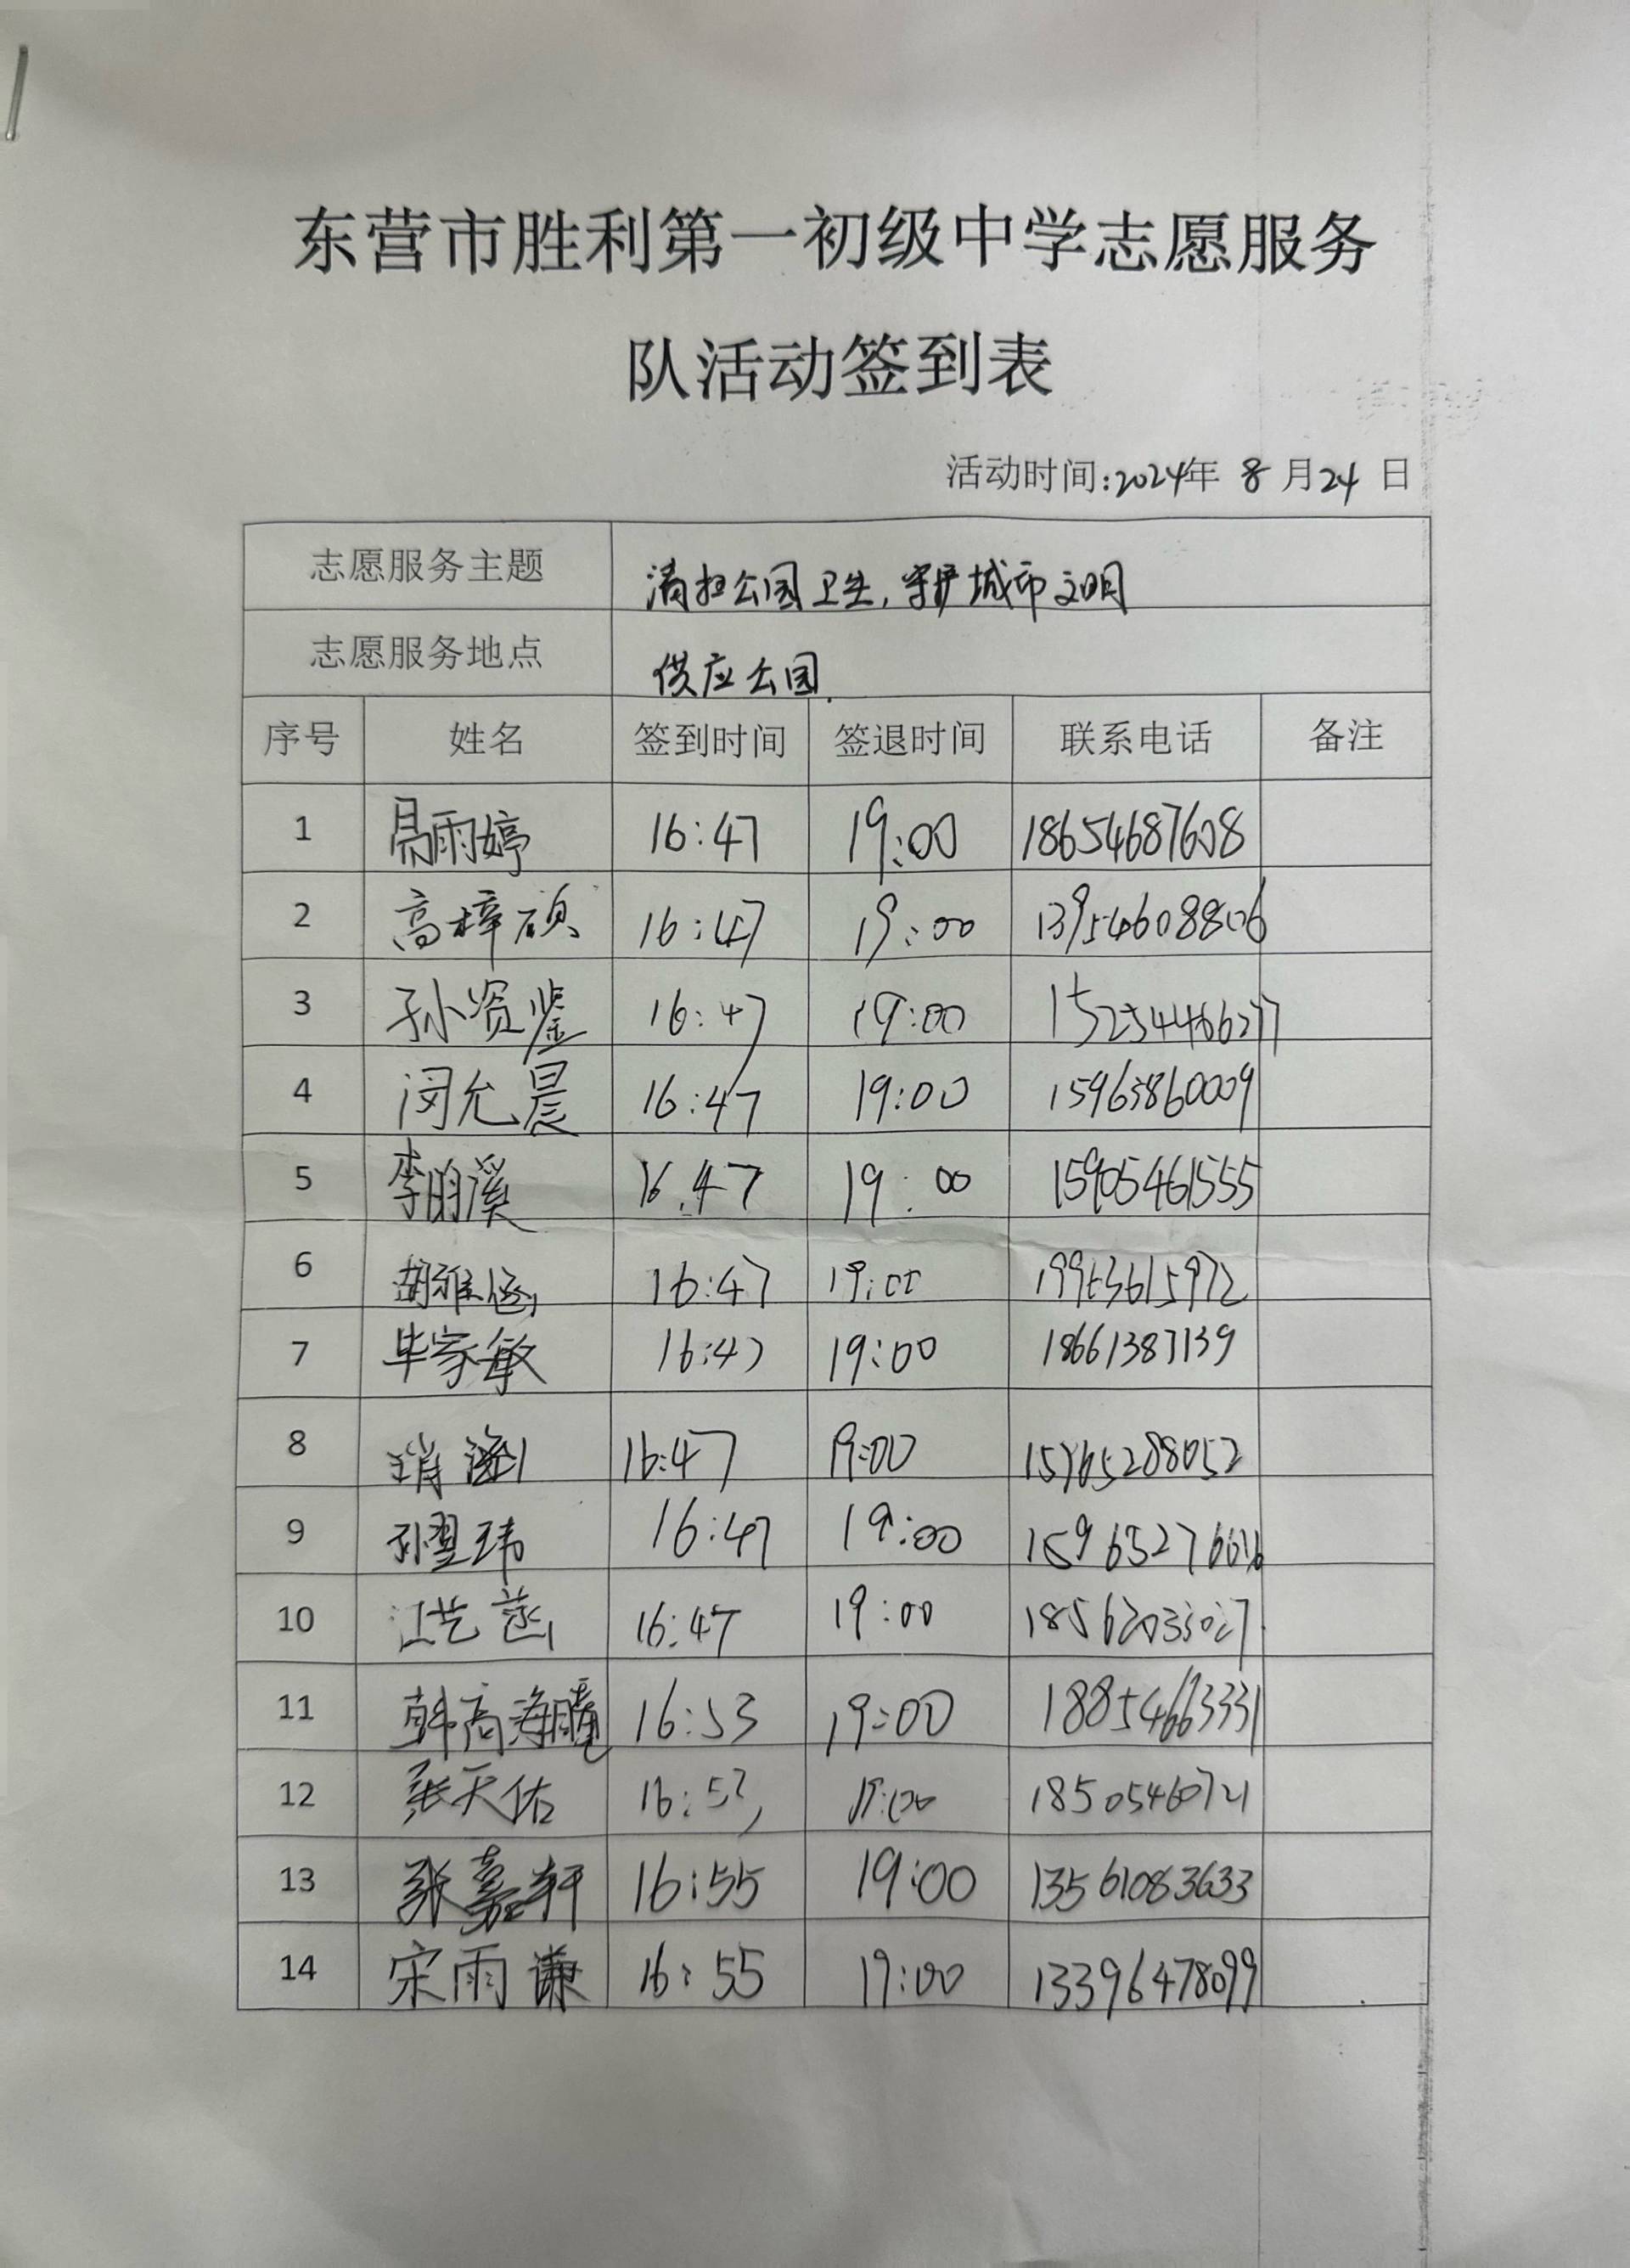 东营市胜利第一初级中学志愿服务
队活动签到表
活动时间:2024年 8 月24 日
志愿服务主题 清扫公园卫生,守护城市文明
志愿服务地点 供应公园
序号 姓名 签到时间 签退时间 联系电话 备注
1 易雨婷 16:47 19:00 18654687608
2 高梓硕 16:47 19:00 13954608806
3 孙资鉴 16:47 19:00 15254466277
4 闵允晨 16:47 19:00 15963860009
5 李明溪 16:47 19:00 15905461555
6 胡雅涵 16:47 19:00 19963615972
7 毕家敏 16:47 19:00 18661387139
8 16:47 19:00 15965288052
9 孙翌玮 16:47 19:00
10 江艺菡 16:47 19:00 18562033027
11 韩高海腾 16:53 19:00 18854663331
12 张天佑 16:53 19:00 18505460721
13 张嘉轩 16:55 19:00 13561083633
14 宋雨谦 16:55 19:00 13396478099